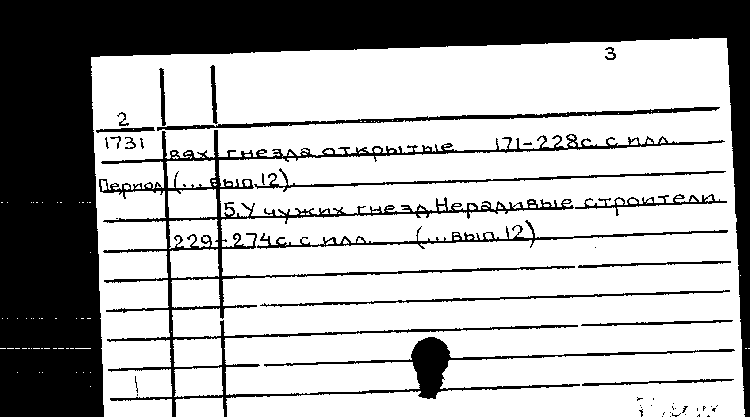 3
2
1731 вях гнезда открытые 171-228с. с илл.
Период (... вып. 12).
5. У чужих гнезд. Нерадивые строители
229-274с. с илл. (...вып. 12)